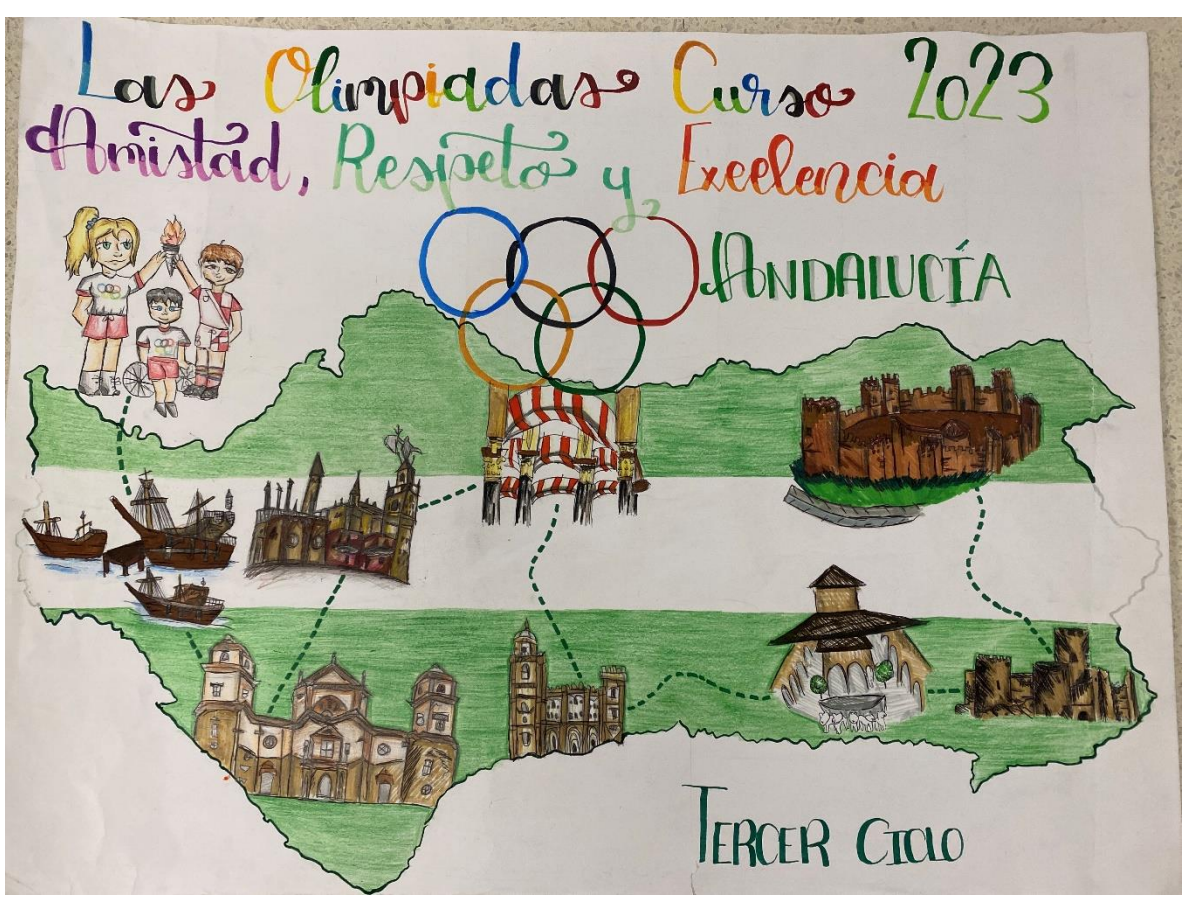 Las Olimpiadas Curso 2023
Amistad, Respeto y Excelencia
ANDALUCÍA
TERCER CICLO